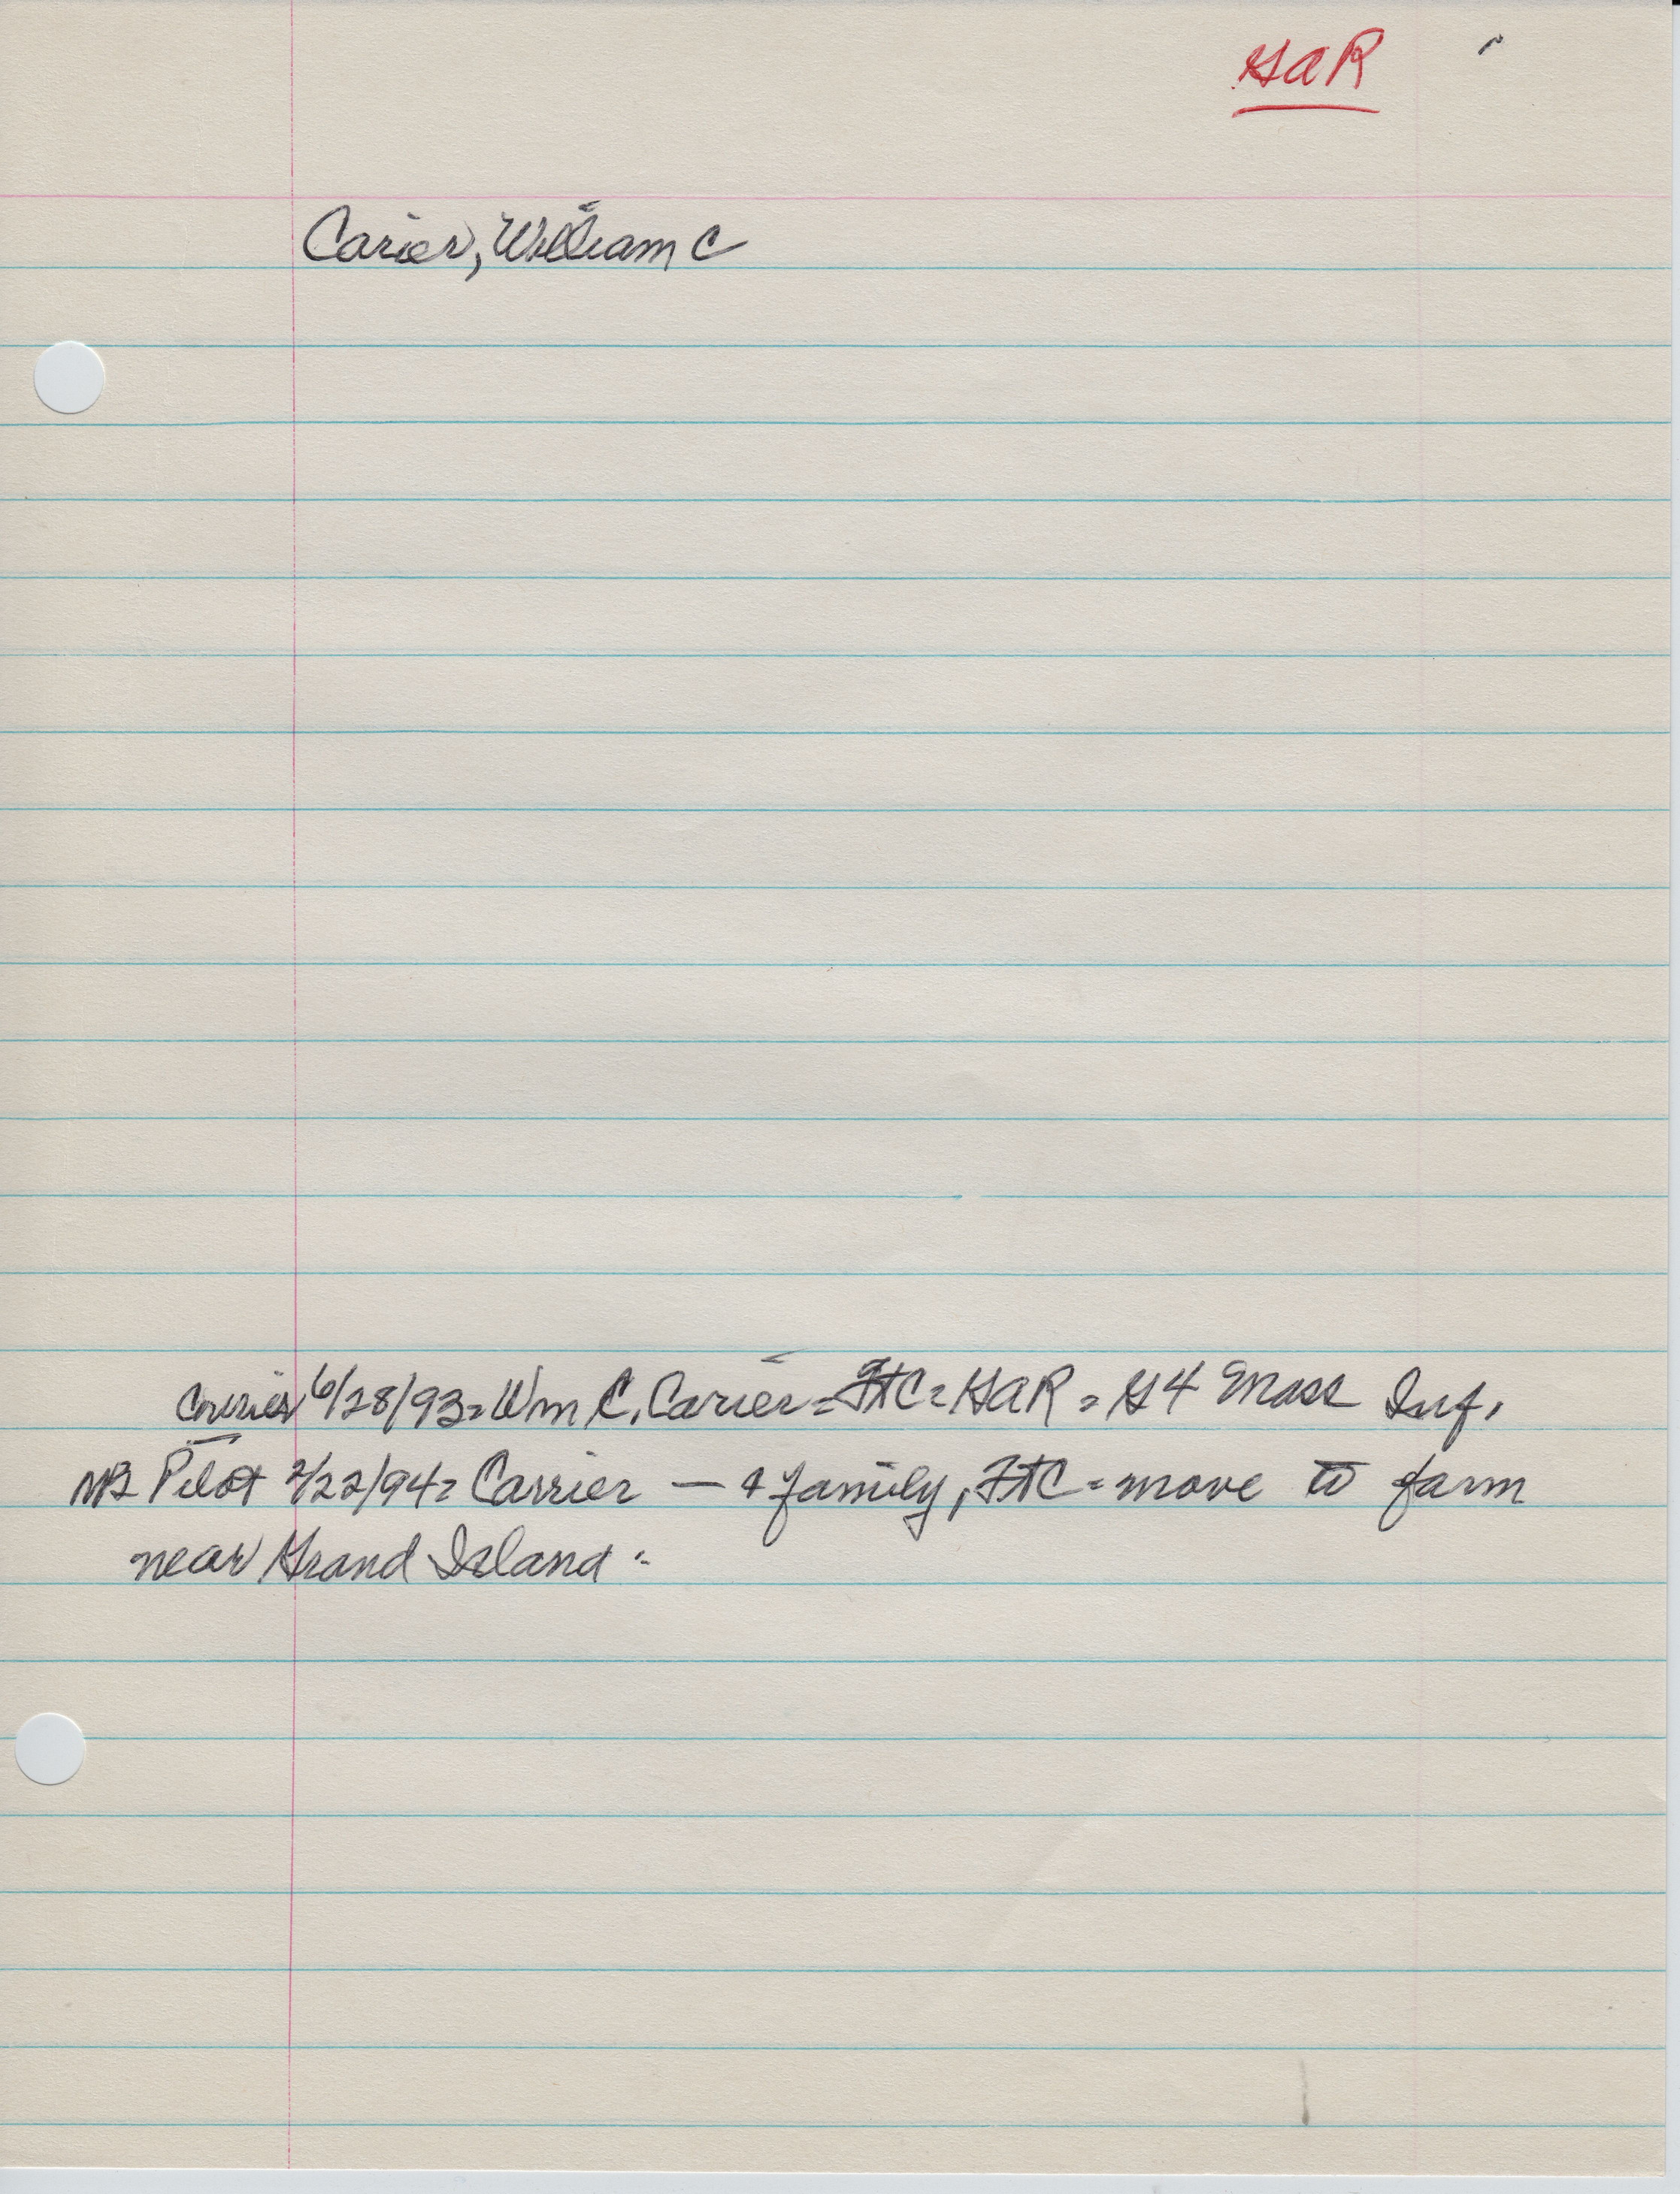 GAR
Carier, William C
Courier 6/28/93 = Wm C. Carier = FtC = GAR = G 4 Mass Inf.
NB Pilot 2/22/94 = Carrier — & family, FtC = move to farm
near Grand Island =